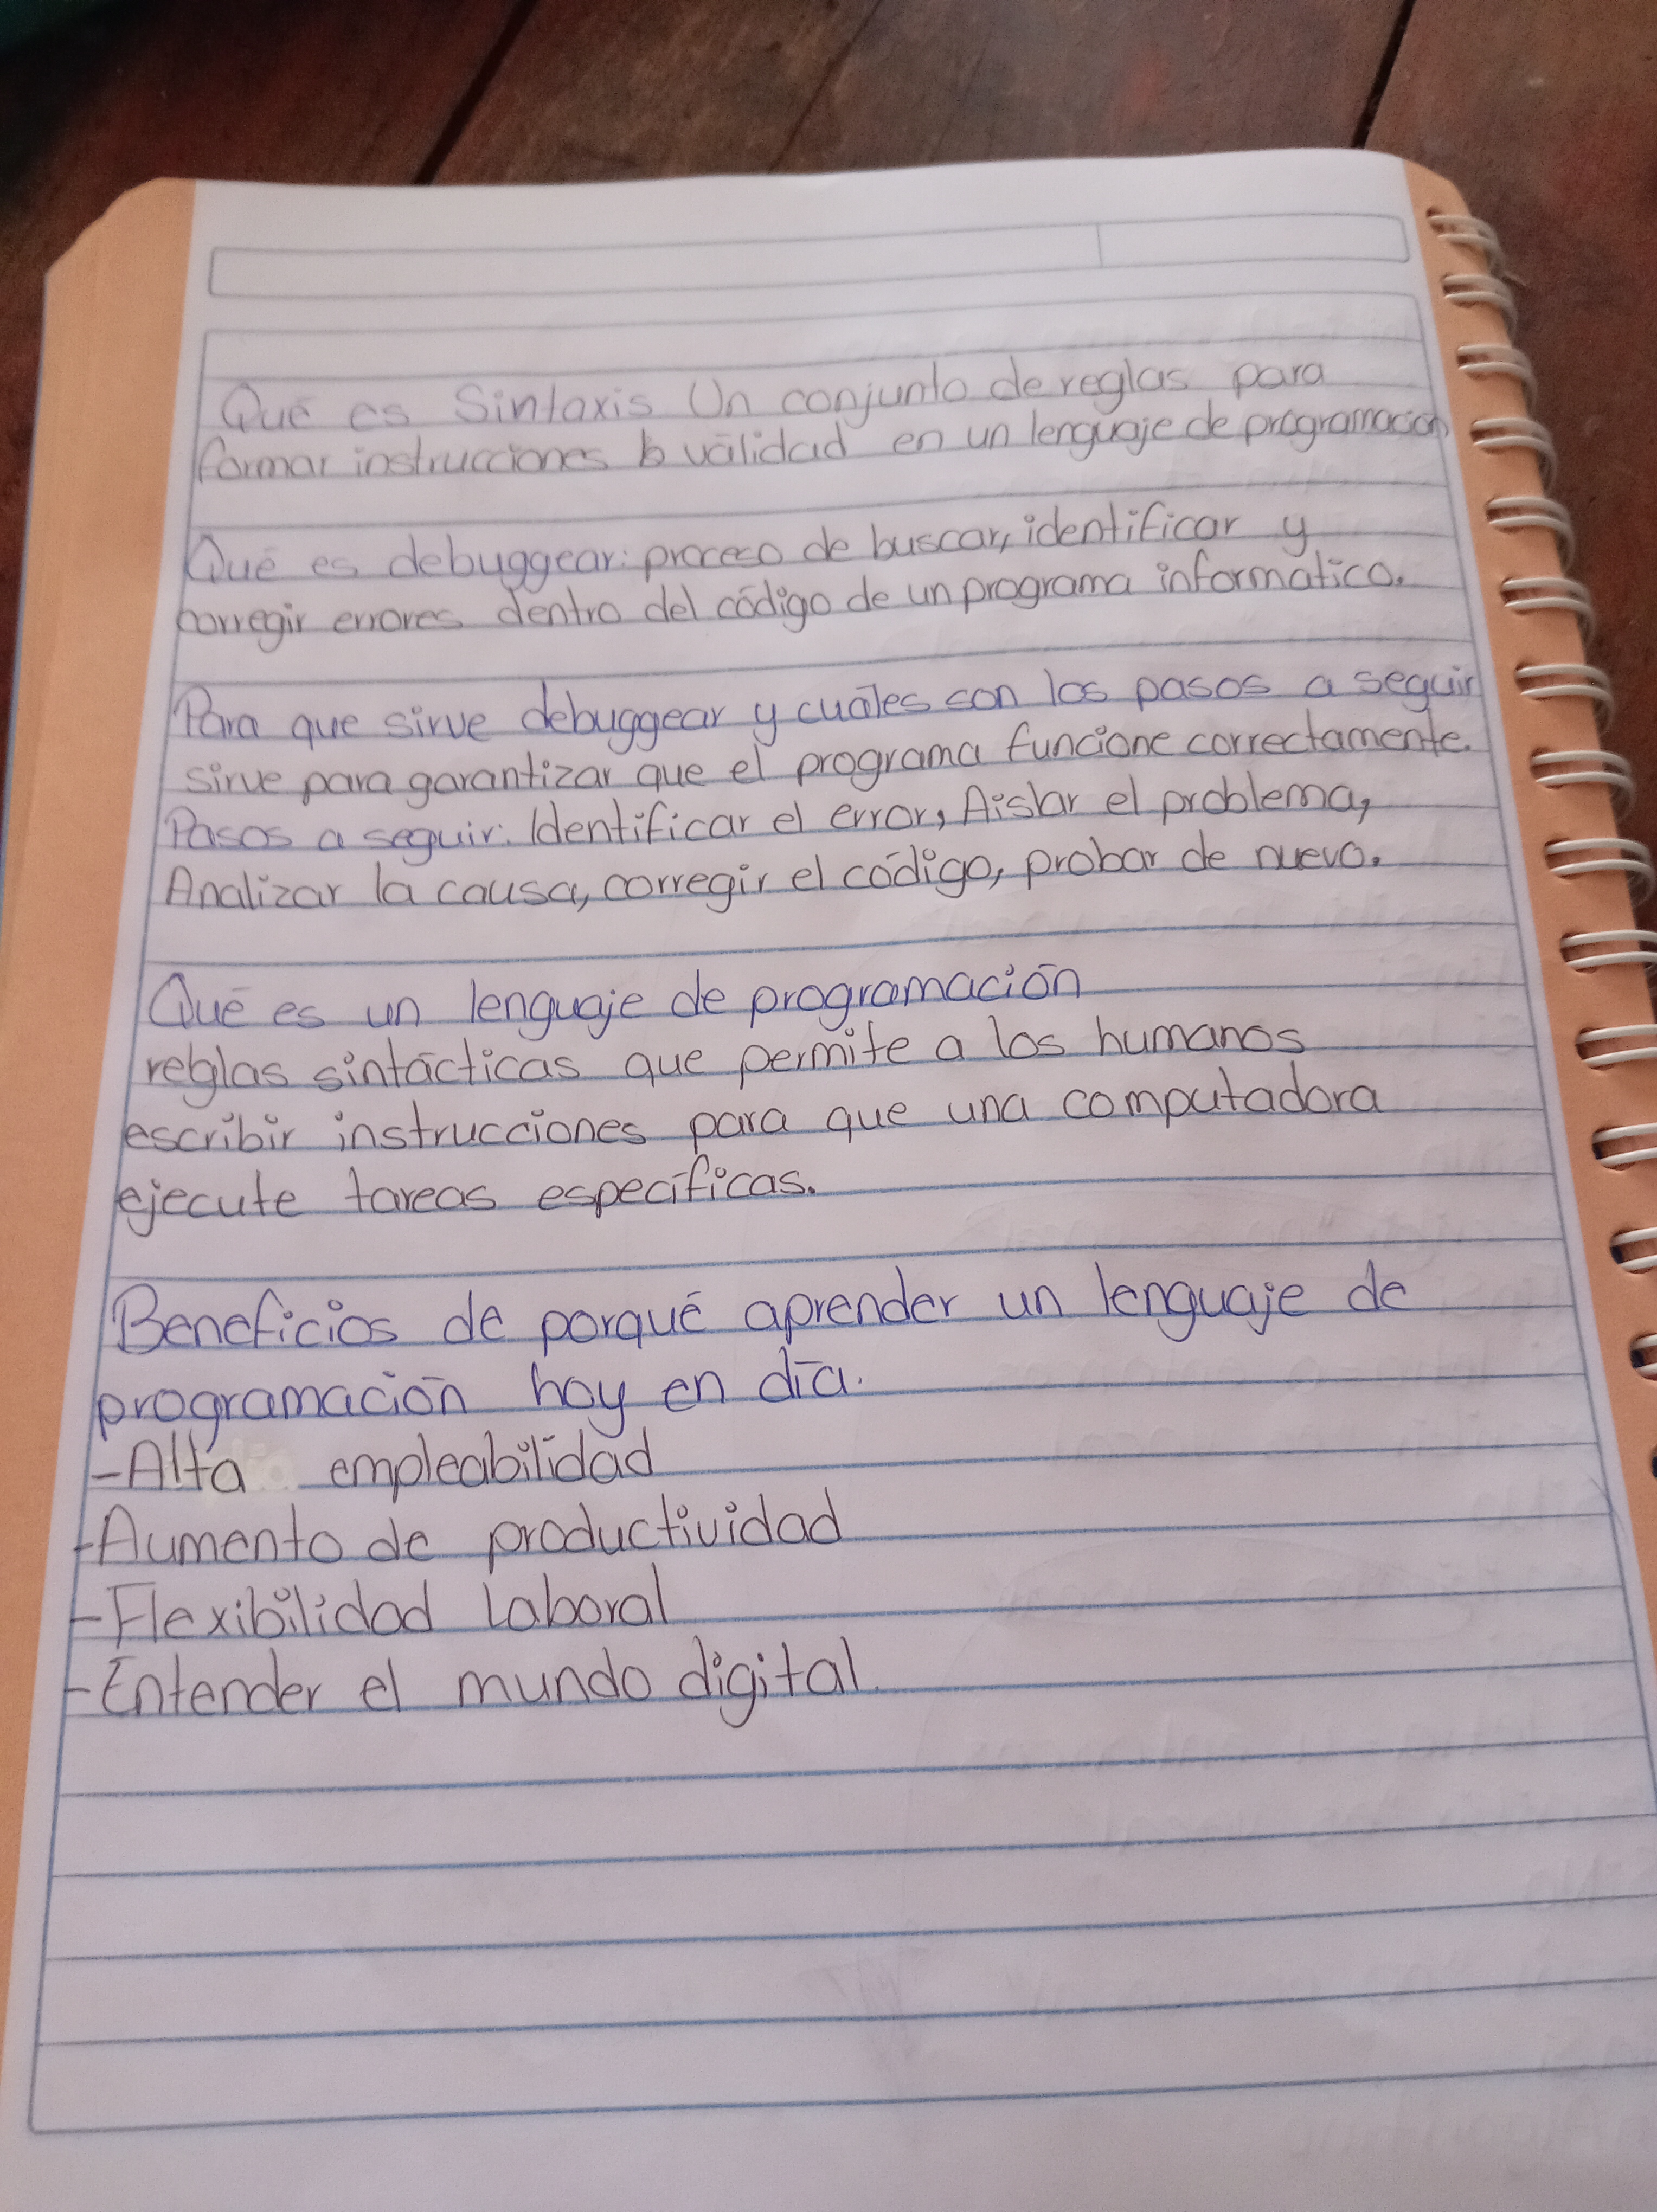 Qué es Sintaxis Un conjunto de reglas para
formar instrucciones válidad en un lenguaje de programación
Qué es debuggear: proceso de buscar, identificar y
corregir errores dentro del código de un programa informatico.
Para que sirve debuggear y cuáles son los pasos a seguir
sirve para garantizar que el programa funcione correctamente.
Pasos a seguir: Identificar el error, Aislar el problema,
Analizar la causa, corregir el código, probar de nuevo.
Qué es un lenguaje de programación
reglas sintácticas que permite a los humanos
escribir instrucciones para que una computadora
ejecute tareas específicas.
Beneficios de porqué aprender un lenguaje de
programación hoy en día.
-Alta empleabilidad
-Aumento de productividad
-Flexibilidad Laboral
-Entender el mundo digital.